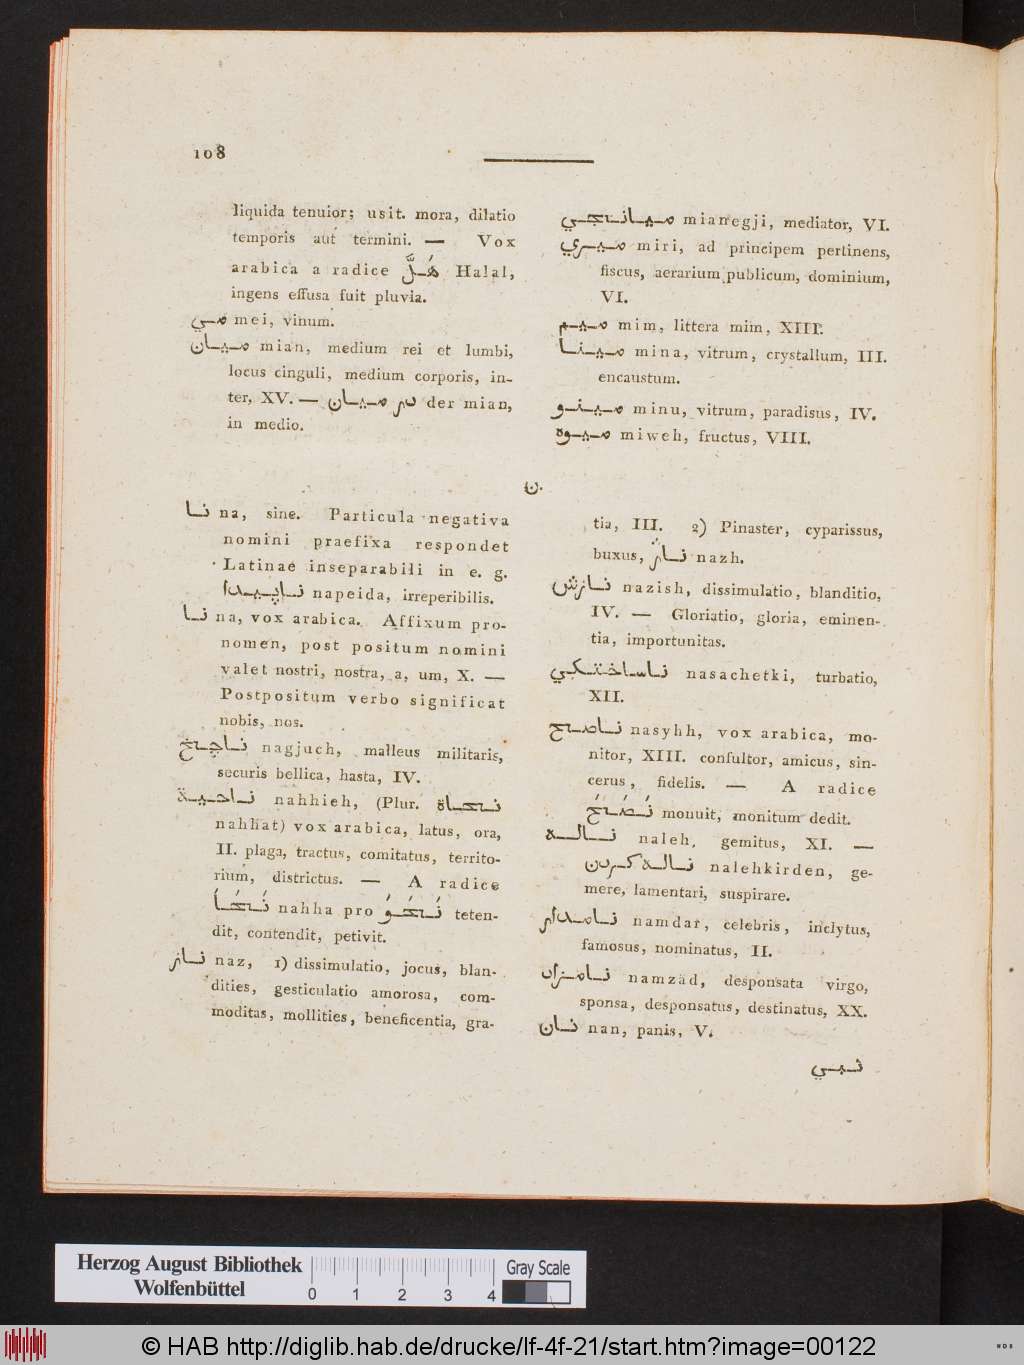 108
liquida tenuior; usit. mora, dilatio
temporis aut termini. — Vox
arabica a radice هَلَّ Halal,
ingens effusa fuit pluvia.
مي mei, vinum.
ميان mian, medium rei et lumbi,
locus cinguli, medium corporis, in-
ter, XV. — در ميان der mian,
in medio.
ميانجي mianegji, mediator, VI.
ميري miri, ad principem pertinens,
fiscus, aerarium publicum, dominium,
VI.
ميم mim, littera mim, XIII.
مينا mina, vitrum, crystallum, III.
encaustum.
مينو minu, vitrum, paradisus, IV.
ميوه miweh, fructus, VIII.
ن.
نا na, sine. Particula negativa
nomini praefixa respondet
Latinae inseparabili in e. g.
ناپيدا napeida, irreperibilis.
نا na, vox arabica. Affixum pro-
nomen, post positum nomini
valet nostri, nostra, a, um, X. —
Postpositum verbo significat
nobis, nos.
ناچخ nagjuch, malleus militaris,
securis bellica, hasta, IV.
ناحية nahhieh, (Plur. نحاة
nahhat) vox arabica, latus, ora,
II. plaga, tractus, comitatus, territo-
rium, districtus. — A radice
نَحَا nahha pro نَحَوَ teten-
dit, contendit, petivit.
ناز naz, 1) dissimulatio, jocus, blan-
dities, gesticulatio amorosa, com-
moditas, mollities, beneficentia, gra-
tia, III. 2) Pinaster, cyparissus,
buxus, ناژ nazh.
نازش nazish, dissimulatio, blanditio,
IV. — Gloriatio, gloria, eminen-
tia, importunitas.
ناساختكي nasachetki, turbatio,
XII.
ناصح nasyhh, vox arabica, mo-
nitor, XIII. consultor, amicus, sin-
cerus, fidelis. — A radice
نَصَحَ monuit, monitum dedit.
ناله naleh, gemitus, XI. —
ناله كردن nalehkirden, ge-
mere, lamentari, suspirare.
نامدار namdar, celebris, inclytus,
famosus, nominatus, II.
نامزاد namzad, desponsata virgo,
sponsa, desponsatus, destinatus, XX.
نان nan, panis, V.
نبي
Herzog August Bibliothek
Wolfenbüttel
0 1 2 3 4
Gray Scale
© HAB http://diglib.hab.de/drucke/lf-4f-21/start.htm?image=00122